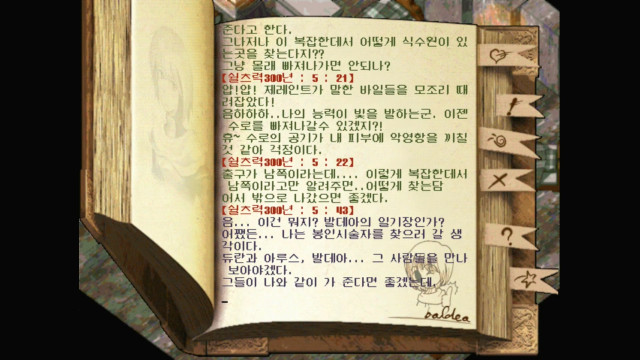 준다고 한다.
그나저나 이 복잡한데서 어떻게 식수원이 있
는곳을 찾는다지??
그냥 몰래 빠져나가면 안되나?
[쉴츠력300년 : 5 : 21]
얍!얍! 제레인트가 말한 바일들을 모조리 때
려잡았다!
음하하하..나의 능력이 빛을 발하는군, 이젠
수로를 빠져나갈수 있겠지?!
휴~ 수로의 공기가 내 피부에 악영향을 끼칠
것 같아 걱정이다.
[쉴츠력300년 : 5 : 22]
출구가 남쪽이라는데.... 이렇게 복잡한데서
남쪽이라고만 알려주면..어떻게 찾는담
어서 밖으로 나갔으면 좋겠다.
[쉴츠력300년 : 5 : 43]
음... 이건 뭐지? 발데아의 일기장인가?
어쨌든... 나는 봉인시술자를 찾으러 갈 생
각이다.
듀란과 아루스, 발데아... 그 사람들을 만나
보아야겠다.
그들이 나와 같이 가 준다면 좋겠는데.
baldea
?